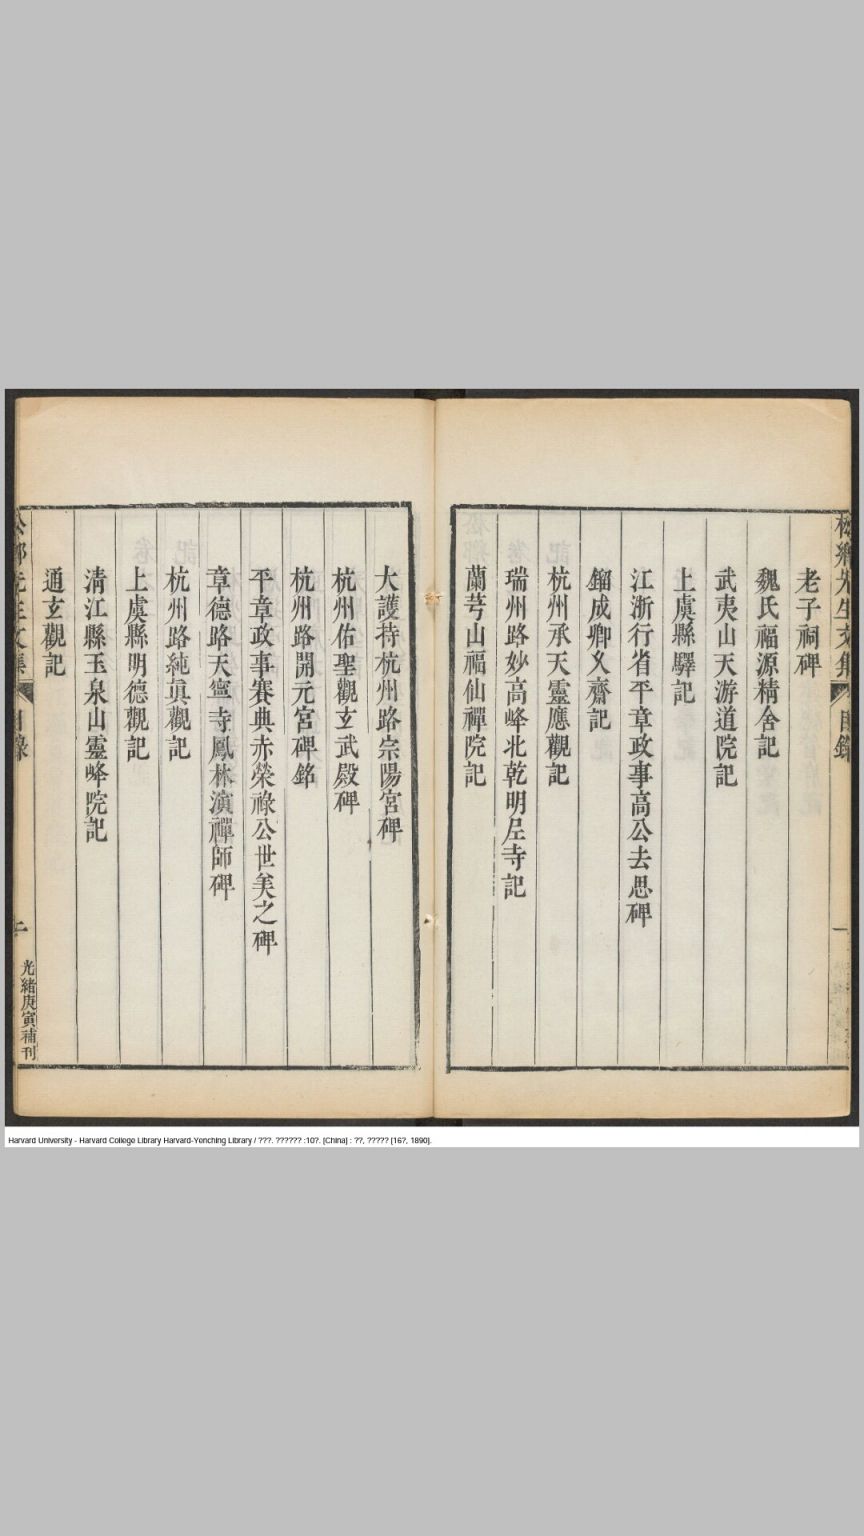 松鄉先生文集
目錄
一
老子祠碑
魏氏福源精舍記
武夷山天游道院記
上虞縣驛記
江浙行省平章政事高公去思碑
鎦成卿乂齋記
杭州承天靈應觀記
瑞州路妙高峰北乾明尼寺記
蘭芎山福仙禪院記
大護持杭州路宗陽宮碑
杭州佑聖觀玄武殿碑
杭州路開元宮碑銘
平章政事賽典赤榮祿公世美之碑
章德路天寧寺鳳林演禪師碑
杭州路純眞觀記
上虞縣明德觀記
清江縣玉泉山靈峰院記
通玄觀記
松鄉先生文集
目錄
二
光緒庚寅補刊
Harvard University - Harvard College Library Harvard-Yenching Library / ???. ?????? :10?. [China] : ??, ????? [16?, 1890].